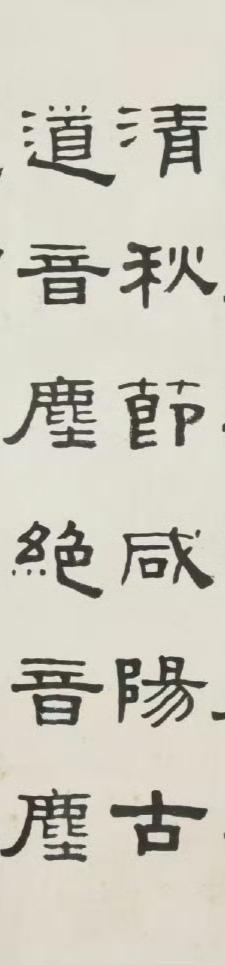 清秋節咸陽古
道音塵絕音塵